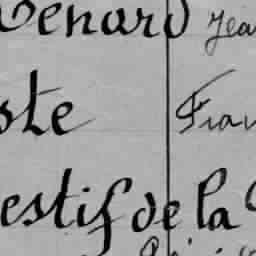 Venard Jea
ste Fran
estif de la